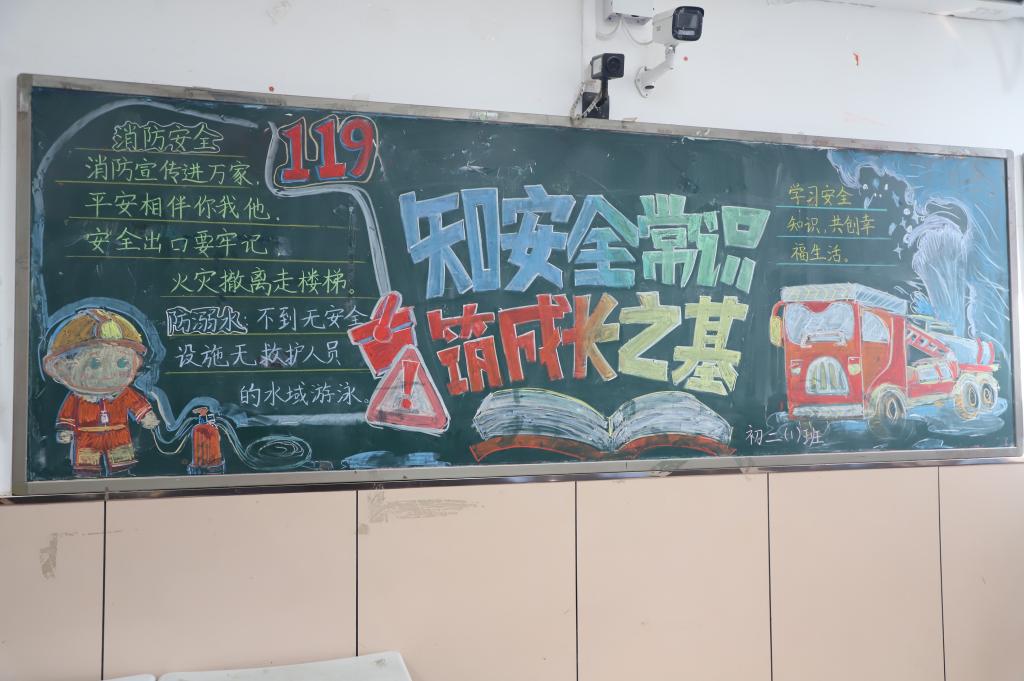 消防安全
消防宣传进万家,
平安相伴你我他.
安全出口要牢记,
火灾撤离走楼梯。
防溺水 不到无安全
设施,无救护人员
的水域游泳。
119
知安全常识
筑成长之基
学习安全
知识,共创幸
福生活。
初二(1)班